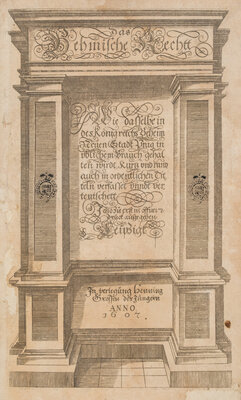 Das
Behmische Recht
Wie dasselbe in
des Königreichs Behem
Neuen Stadt Prag in
üblichem Brauch gehal-
ten wirdt Kurtz vnd rund
auch in ordentlichen Ti-
teln verfasset vnndt ver-
teutschett
Jetzo zu erst in offnen
druck ausgegeben
Leipzigk
In verlegung Henning
Grossen des Jüngern
ANNO
1607